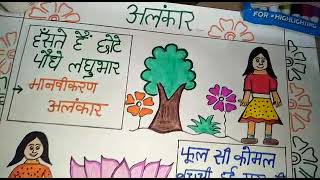 अलंकार
FOR HIGHLIGHTING
हँसते हैं छोटे
पौधे लघुभार
→ मानवीकरण
अलंकार
फूल सी कोमल